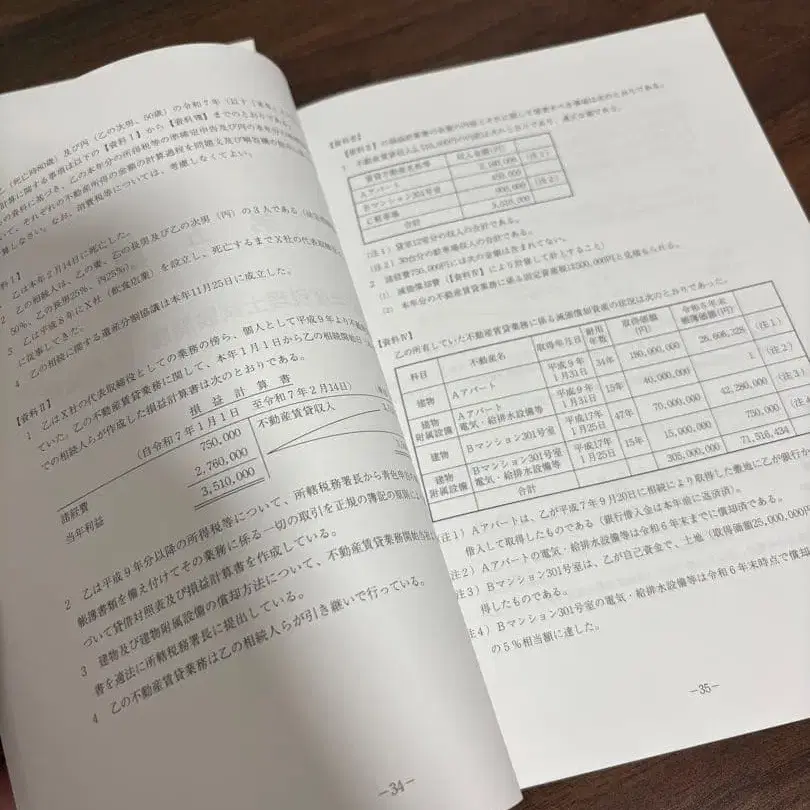 (死亡時80歳) 及び丙 (乙の次男、50歳) の令和7年
計算に関する事項は以下の【資料Ⅰ】から【資料Ⅳ】までのとおりである。
の資料に基づき、乙の本年分の所得税等の準確定申告及び丙の本年分の
いて、それぞれの不動産所得の金額の計算過程を問題文及び解答欄の
算しなさい。なお、消費税等については、考慮しなくてよい。
料Ⅰ】
乙は本年2月14日に死亡した。
2 乙の相続人は、乙の妻、乙の長男及び乙の次男 (丙) の3人である
50%、乙の長男25%、丙25%)。
3 乙は平成8年にX社 (飲食店業) を設立し、死亡するまでX社の代表取締役
に従事してきた。
4 乙の相続に関する遺産分割協議は本年11月25日に成立した。
【資料Ⅱ】
1 乙はX社の代表取締役としての業務の傍ら、個人として平成9年より不動
ていた。乙の不動産賃貸業務に関して、本年1月1日から乙の相続開始日
での相続人らが作成した損益計算書は次のとおりである。
損益計算書
(自令和7年1月1日 至令和7年2月14日)
諸経費 750,000 不動産賃貸収入
当年利益 2,760,000
3,510,000
2 乙は平成9年分以降の所得税等について、所轄税務署長から青色申告
帳簿書類を備え付けてその業務に係る一切の取引を正規の簿記の原則に
づいて貸借対照表及び損益計算書を作成している。
3 建物及び建物附属設備の償却方法について、不動産賃貸業務開始当初
書を適法に所轄税務署長に提出している。
4 乙の不動産賃貸業務は乙の相続人らが引き継いで行っている。
-34-
【資料Ⅲ】
賃貸不動産名称等 収入金額(円)
Aアパート 2,160,000 (注1)
Bマンション301号室 450,000
C駐車場 900,000 (注2)
合計
(注1) 貸室12室分の収入の合計である。
(注2) 30台分の駐車場収入の合計である。
2 諸経費750,000円には次の金額は含まれていない。
(1) 減価償却費 (【資料Ⅳ】により計算して計上すること)
(2) 本年分の不動産賃貸業務に係る固定資産税は500,000円と見積もられる。
【資料Ⅳ】
乙の所有していた不動産賃貸業務に係る減価償却資産の状況は次のとおりであった。
科目 不動産名 取得年月日 耐用年数 取得価額(円) 令和6年末帳簿価額(円)
建物 Aアパート 平成9年1月31日 34年 180,000,000 28,608,328 (注1)
建物附属設備 Aアパート電気・給排水設備等 平成9年1月31日 15年 40,000,000 1 (注2)
建物 Bマンション301号室 平成17年1月25日 47年 70,000,000 42,280,000 (注3)
建物附属設備 Bマンション301号室電気・給排水設備等 平成17年1月25日 15年 15,000,000 750,000 (注4)
合計 305,000,000 71,516,434
(注1) Aアパートは、乙が平成7年9月20日に相続により取得した敷地に乙が銀行か
借入して取得したものである (銀行借入金は本年前に返済済)。
(注2) Aアパートの電気・給排水設備等は令和6年末までに償却済である。
(注3) Bマンション301号室は、乙が自己資金で、土地 (取得価額25,000,000円
得したものである。
(注4) Bマンション301号室の電気・給排水設備等は令和6年末時点で償却
の5%相当額に達した。
-35-